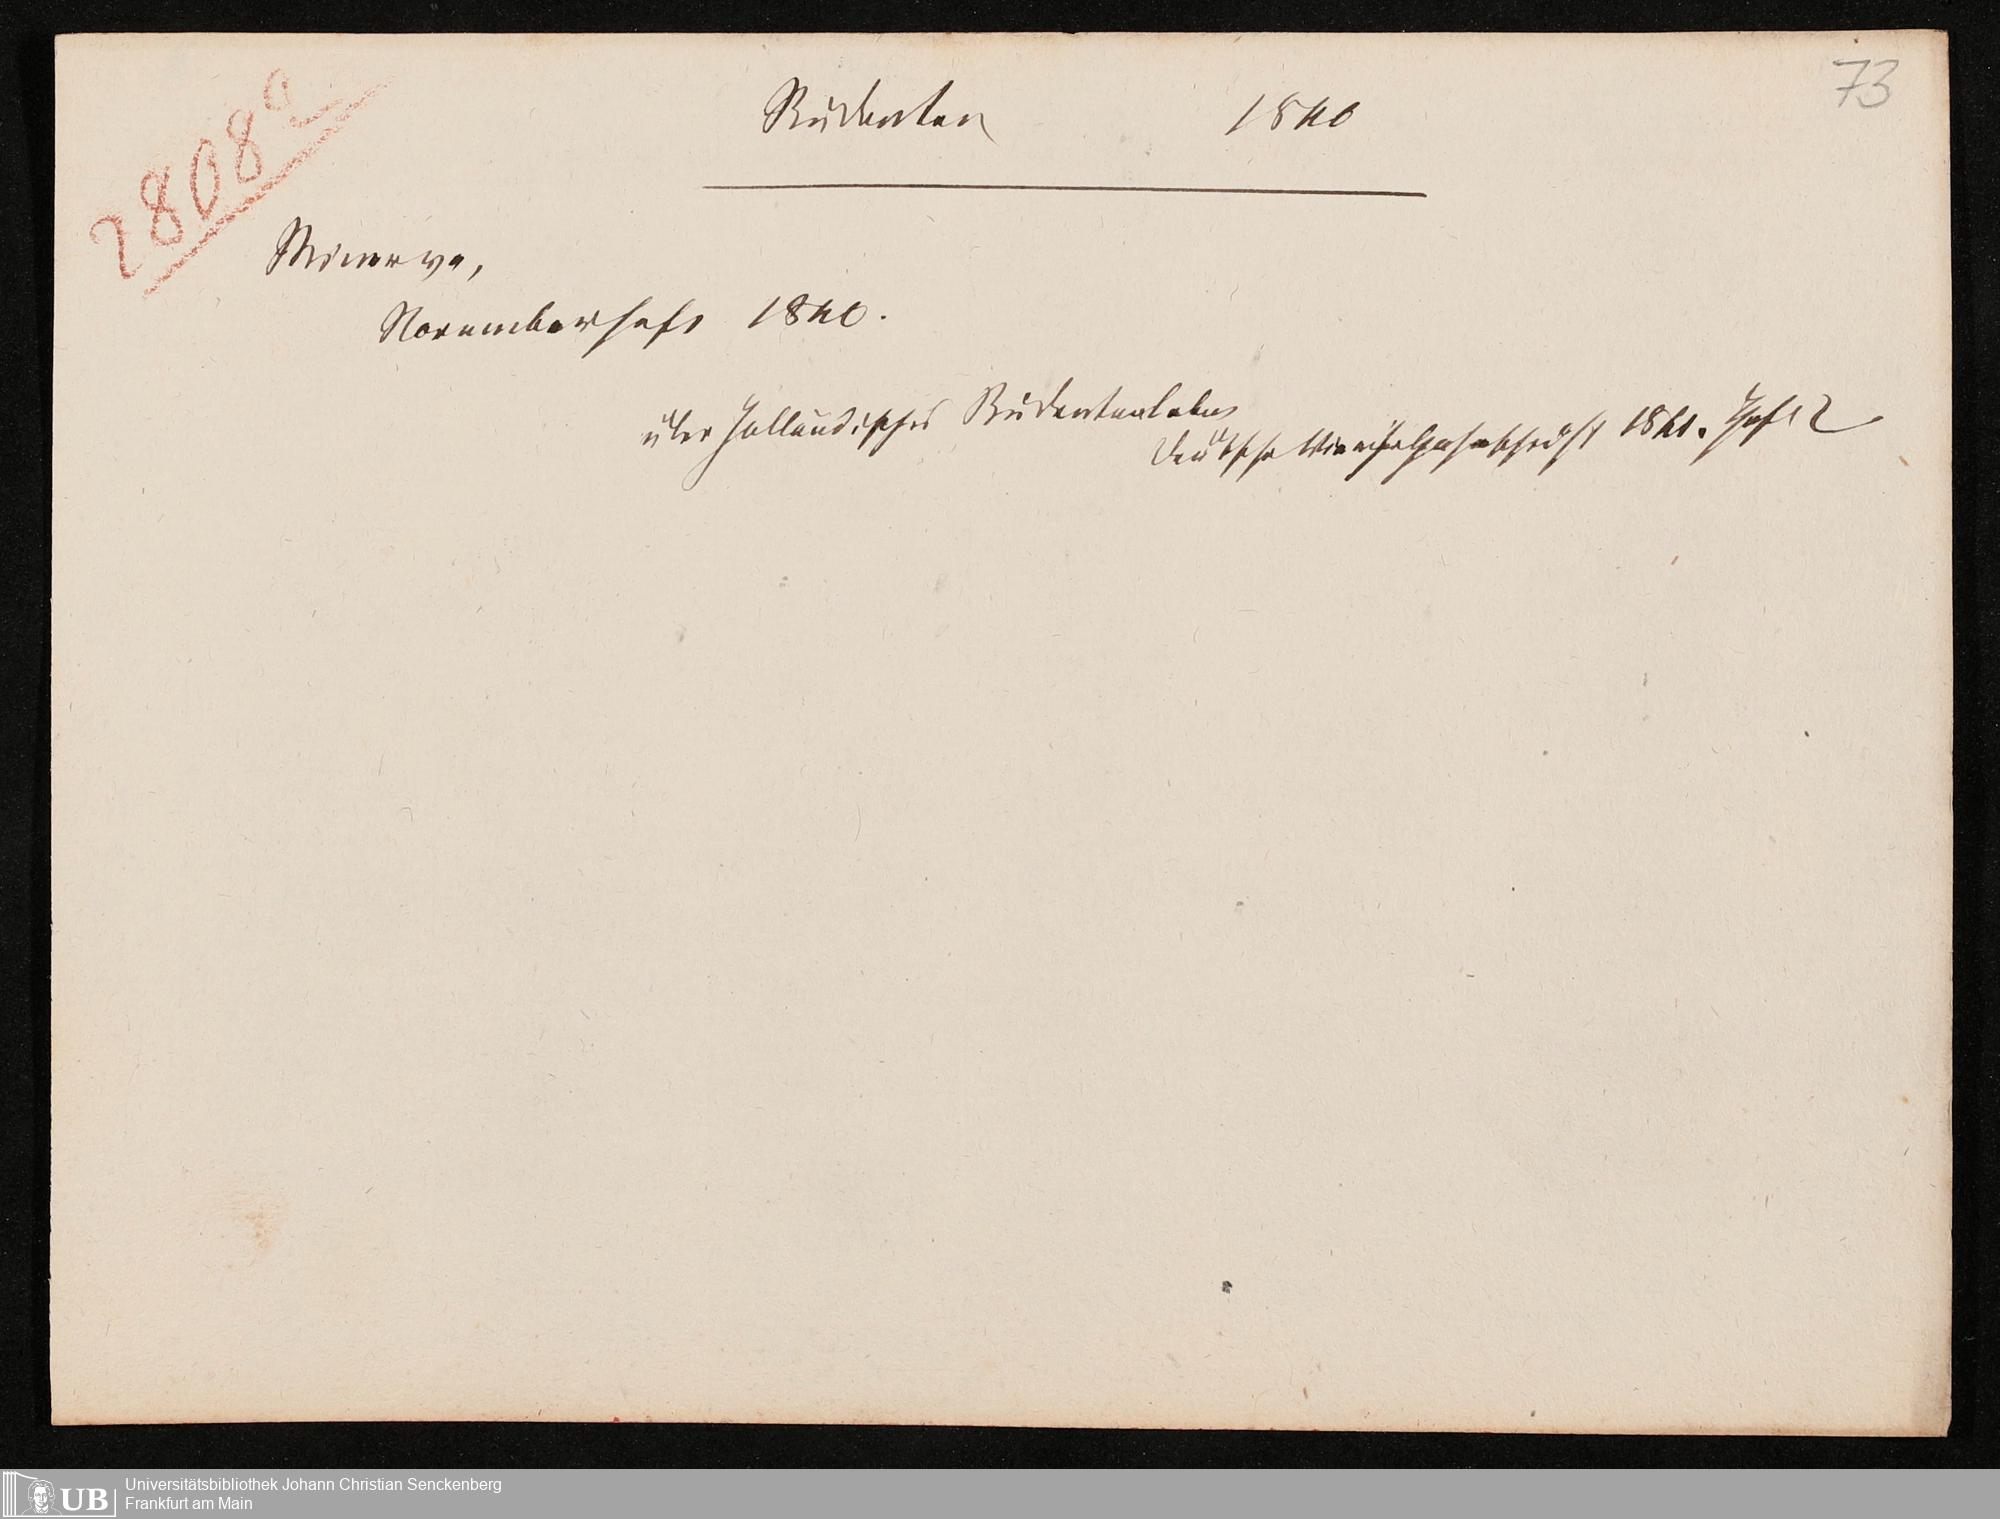 73
2808 c
Studenten 1840
Minerva,
Novemberheft 1840.
über Holländisches Studentenleben
deutsche Vierteljahrschrift 1841. Heft 2
UB Universitätsbibliothek Johann Christian Senckenberg
Frankfurt am Main